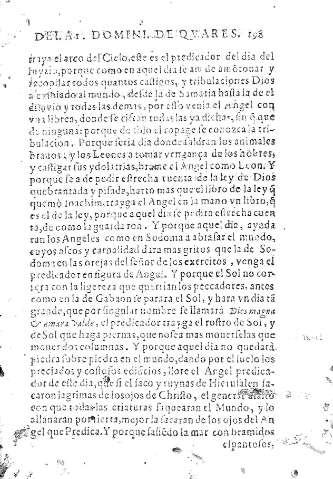 DEL A1. DOMINI. DE QVARES. 198
traya el arco del Cielo, este es el predicador del dia del
juyzio, porque como en aquel dia se an de amôtonar y
recopilar todos quantos castigos, y tribulaciones Dios
a embiado al mundo, desde la de Samaria hasta la de el
diluvio y todas las demas, por esso venia el Angel con
vn libro, donde se cifran todas las
de ninguna: porque de solo el ropage se conozca la tri-
bulacion. Porque seria dia donde saldran los animales
brauos, y los Leones a tomar vengança de los hôbres,
y castigar sus ydolatrias, brame el Angel como Leon. Y
porque se a de pedir estrecha cuenta de la ley de Dios
quebrantada y pisada, harto mas que el libro de la ley q̃
quemò Ioachim, trayga el Angel en la mano vn libro, q̃
es el de la ley, porque aquel dia se pedira estrecha cuen
ta, de como la guardaron. Y porque aquel dia, ayuda
ran los Angeles como en Sodoma a abrasar el mundo,
cuyos ascos y carnalidad dara mas gritos que la de So-
doma en las orejas del señor de los exercitos, venga el
predicador en figura de Angel. Y porque el Sol no cor-
rera con la ligereza que querrian los peccadores, antes
como en la de Gabaon se parara el Sol, y hara vn dia tã
grande, que por singular nombre se llamarà Dies magna
& amara valde, el predicador trayga el rostro de Sol, y
de Sol que haga piernas, que no sea mas mouerselas que
mouer dos columnas. Y porque aquel dia no quedarà
piedra sobre piedra en el mundo, dando por el suelo los
preciados y costosos edificios, llore el Angel predica-
dor de este dia, que si el saco y ruynas de Hierusalen sa-
caron lagrimas de los ojos de Christo, el general
con que todas las criaturas saquearan el Mundo, y lo
allanaran por tierra, mejor la sacaran de los ojos del An
gel que Predica. Y porque saliêdo la mar con bramidos
espantosos,